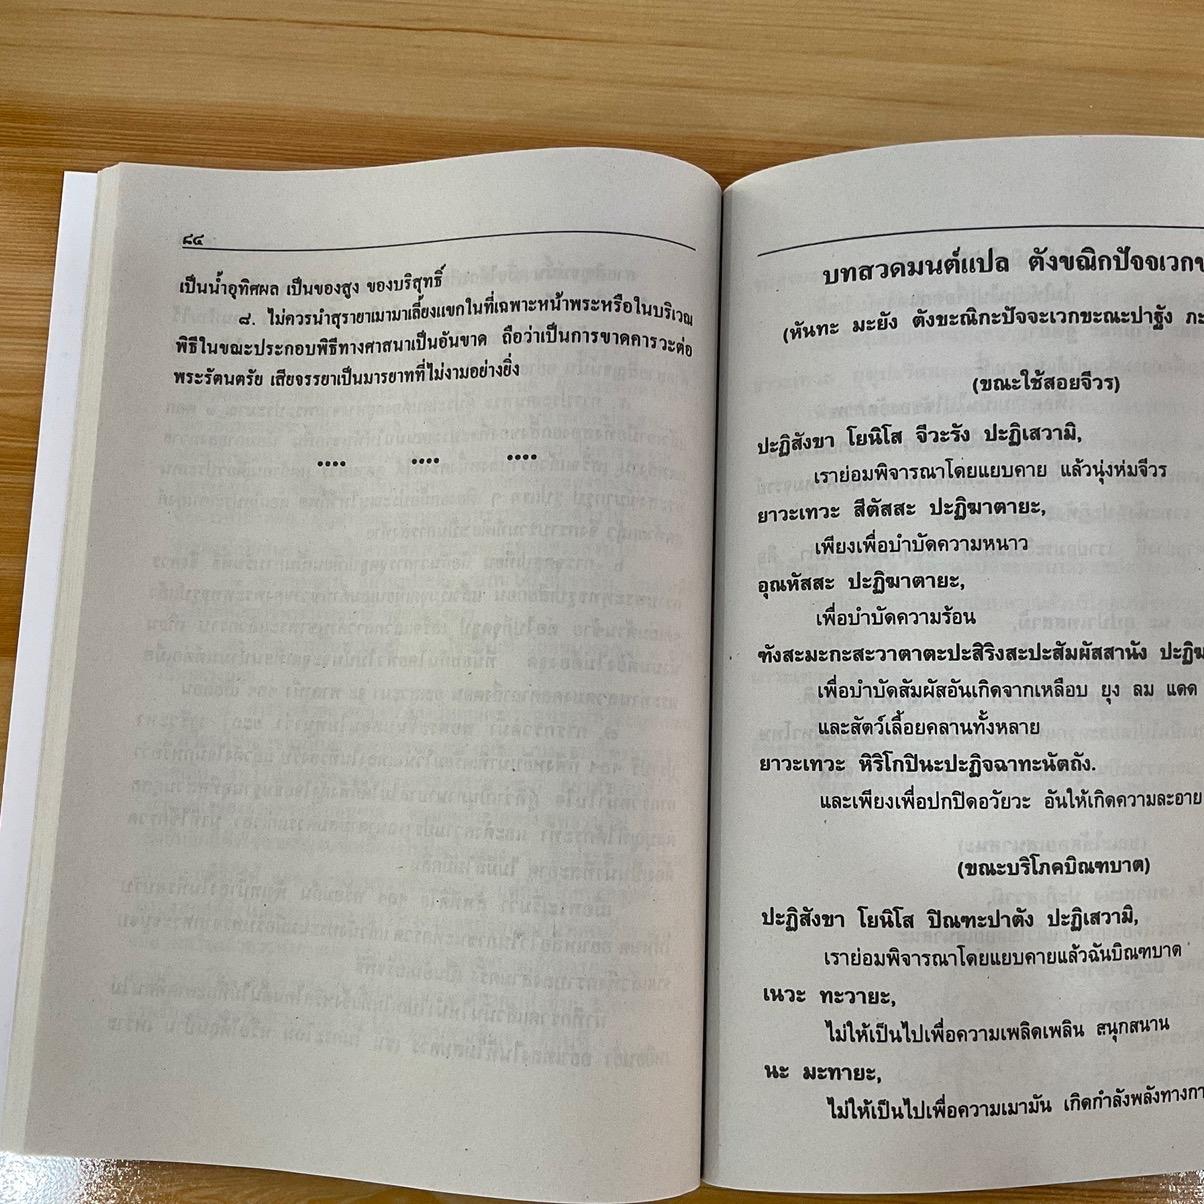 ๘๔
เป็นน้ำอุทิศผล เป็นของสูง ของบริสุทธิ์
๘. ไม่ควรนำสุรายาเมามาเลี้ยงแขกในที่เฉพาะหน้าพระหรือในบริเวณ
พิธีในขณะประกอบพิธีทางศาสนาเป็นอันขาด ถือว่าเป็นการขาดคารวะต่อ
พระรัตนตรัย เสียจรรยาเป็นมารยาทที่ไม่งามอย่างยิ่ง
•••• •••• ••••
บทสวดมนต์แปล ตังขณิกปัจจเวกข
(หันทะ มะยัง ตังขะณิกะปัจจะเวกขะณะปาฐัง ภะ
(ขณะใช้สอยจีวร)
ปะฏิสังขา โยนิโส จีวะรัง ปะฏิเสวามิ,
เราย่อมพิจารณาโดยแยบคาย แล้วนุ่งห่มจีวร
ยาวะเทวะ สีตัสสะ ปะฏิฆาตายะ,
เพียงเพื่อบำบัดความหนาว
อุณหัสสะ ปะฏิฆาตายะ,
เพื่อบำบัดความร้อน
ฑังสะมะกะสะวาตาตะปะสิริงสะปะสัมผัสสานัง ปะฏิฆ
เพื่อบำบัดสัมผัสอันเกิดจากเหลือบ ยุง ลม แดด
และสัตว์เลื้อยคลานทั้งหลาย
ยาวะเทวะ หิริโกปินะปะฏิจฉาทะนัตถัง.
และเพียงเพื่อปกปิดอวัยวะ อันให้เกิดความละอาย
(ขณะบริโภคบิณฑบาต)
ปะฏิสังขา โยนิโส ปิณฑะปาตัง ปะฏิเสวามิ,
เราย่อมพิจารณาโดยแยบคายแล้วฉันบิณฑบาต
เนวะ ทะวายะ,
ไม่ให้เป็นไปเพื่อความเพลิดเพลิน สนุกสนาน
นะ มะทายะ,
ไม่ให้เป็นไปเพื่อความเมามัน เกิดกำลังพลังทางกา